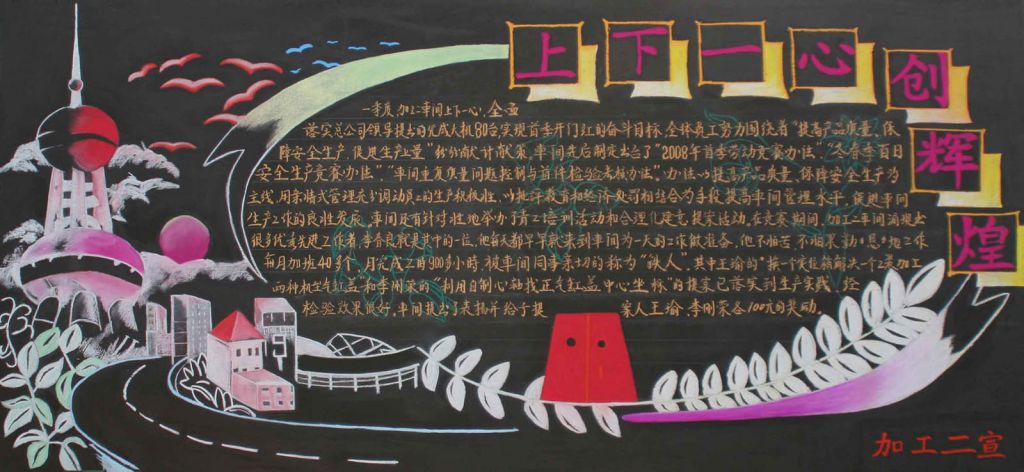 上下一心创辉煌
一季度,加工二车间上下一心,全面
落实总公司领导提出的完成人机80台实现首季开门红的奋斗目标,全体员工努力围绕着“提高产品质量、保
障安全生产、促进生产量”纷纷献计献策,车间先后制定出台了“2008年首季劳动竞赛办法”、“冬春季百日
安全生产竞赛办法”、“车间重复质量问题控制与首件检验考核办法”。办法以提高产品质量、保障安全生产为
主线,用亲情式管理充分调动员工的生产积极性,以批评教育和经济处罚相结合为手段提高车间管理水平,促进车间
生产工作的良性发展。车间还有针对性地举办了青工培训活动和合理化建议提案活动。在竞赛期间,加工二车间涌现出
很多优秀先进工作者,李春良就是其中的一位,他每天都早早就来到车间为一天的工作做准备,他不怕苦、不怕累、勤勤恳恳地工作
每月加班40多个,月完成工时900多小时,被车间同事亲切的称为“铁人”。其中王瑜的
和李刚荣的“利用自制心轴找正气缸盖中心坐标”的提案已落实到生产实践,经
检验效果很好,车间提出了表扬并给于提案人王瑜、李刚荣各100元的奖励。
加工二宣